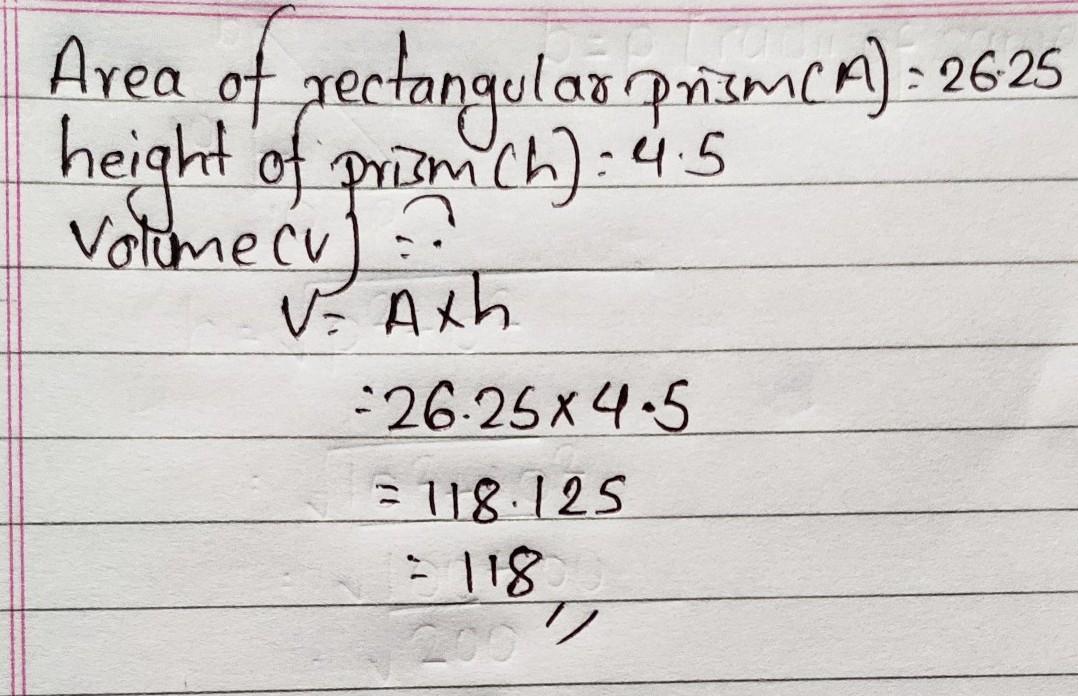 Area of rectangular prism(A) = 26.25
height of prism(h) = 4.5
Volume(v) = ?
V = A x h
= 26.25 x 4.5
= 118.125
= 118